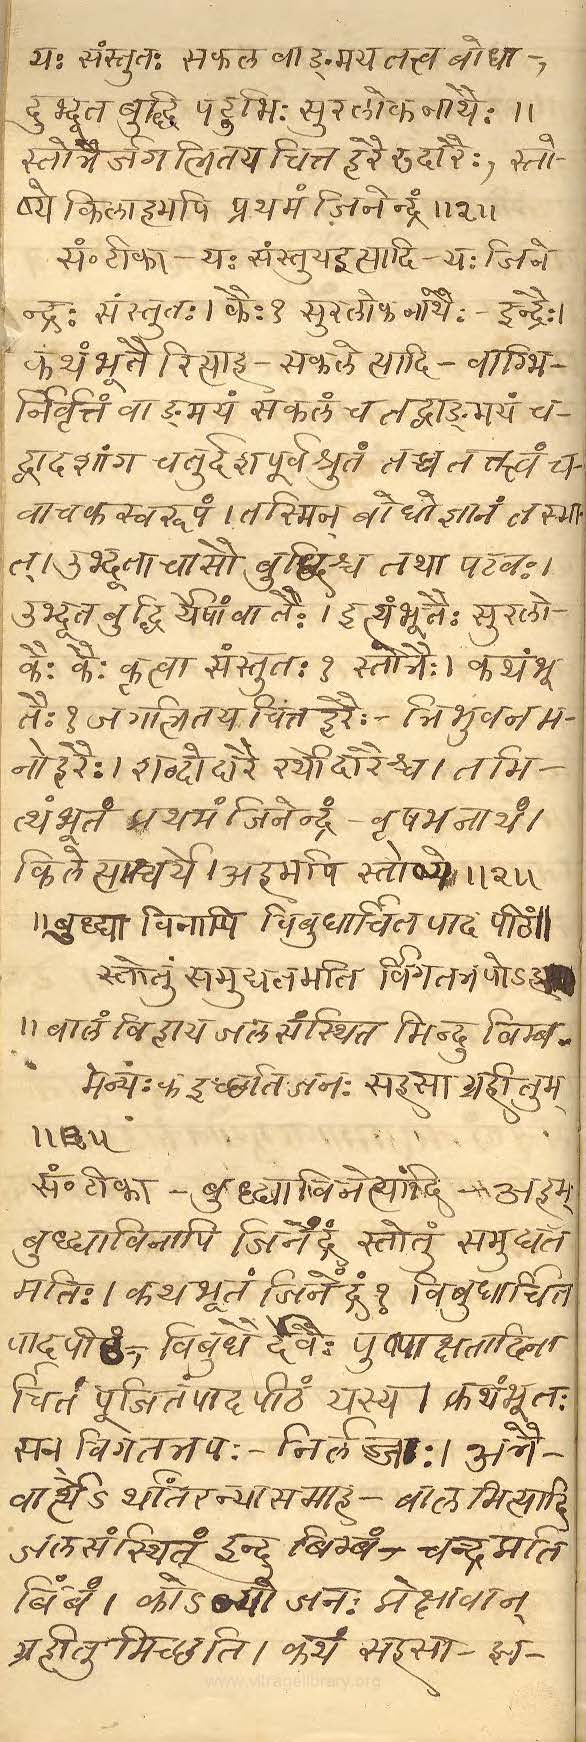 यः संस्तुतः सकल वाङ्मय तत्त्व बोधा-,
दुभ्दूत बुद्धि पटुभिः सुरलोकनाथैः ॥
स्तोत्रैर्जगत्त्रितय चित्त हरै रुदारैः, स्तो-
ष्ये किलाहमपि प्रथमं जिनेन्द्रं ॥२॥
सं॰ टीका - यः संस्तुयइत्यादि - यः जिने
न्द्रः संस्तुतः। कैः? सुरलोकनाथैः - इन्द्रैः।
कथंभूतै रित्याह - सकलेत्यादि - वाग्भि-
र्निर्वृत्तं वाङ्मयं सकलं च तद्वाङ्मयं च-
द्वादशांग चतुर्दशपूर्वश्रुतं तस्य तत्त्वं च-
वाचक स्वरूपं । तस्मिन् बोधो ज्ञानं तस्मा
त्। उभ्दूता चासौ बुद्धिश्च तथा पटवः।
उभ्दूत बुद्धि र्येषां वा तैः । इत्थंभूतैः सुरलो-
कैः कैः कृत्वा संस्तुतः? स्तोत्रैः। कथंभू
तैः? जगत्त्रितय चित्त हरैः - त्रिभुवन म-
नोहरैः। शब्दोदारै रर्थोदारैश्च । तमि-
त्थंभूतं प्रथमं जिनेन्द्रं - वृषभनाथं।
किलेत्याश्चर्ये। अहमपि स्तोष्ये ॥२॥
॥बुध्द्या विनापि विबुधार्चित पाद पीठं॥
स्तोतुं समुद्यतमति र्विगतत्रपोऽहम्
॥ बालं विहाय जलसंस्थित मिन्दु बिम्ब-
मन्यः क इच्छति जनः सहसा ग्रहीतुम्
॥३॥
सं॰ टीका - बुध्द्याविनेत्यादि - अहम्
बुध्द्याविनापि जिनेंद्रं स्तोतुं समुद्यत
मतिः। कथभूतं जिनेंद्रं? विबुधार्चित
पादपीठं, विबुधै र्देवैः पुष्पाक्षतादिना
र्चितं पूजितं पादपीठं यस्य । कथंभूतः
सन् विगतत्रपः - निर्लज्जः। अत्रै-
वार्थेऽर्थांतरन्यासमाह - बालमित्यादि
जलसंस्थितं इन्दु बिम्बं - चन्द्रप्रति
बिंबं । कोऽन्यो जनः प्रेक्षावान्
ग्रहीतुमिच्छति । कथं सहसा - झ-
www.vitragelibrary.org